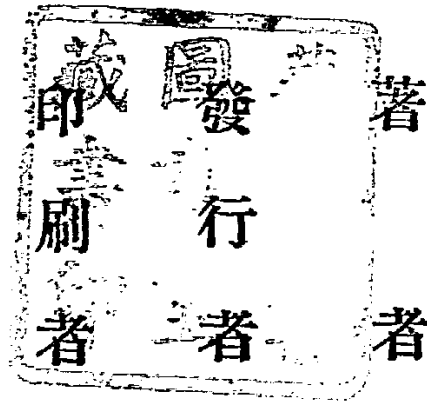 著者
發行者
印刷者
藏
圖
書